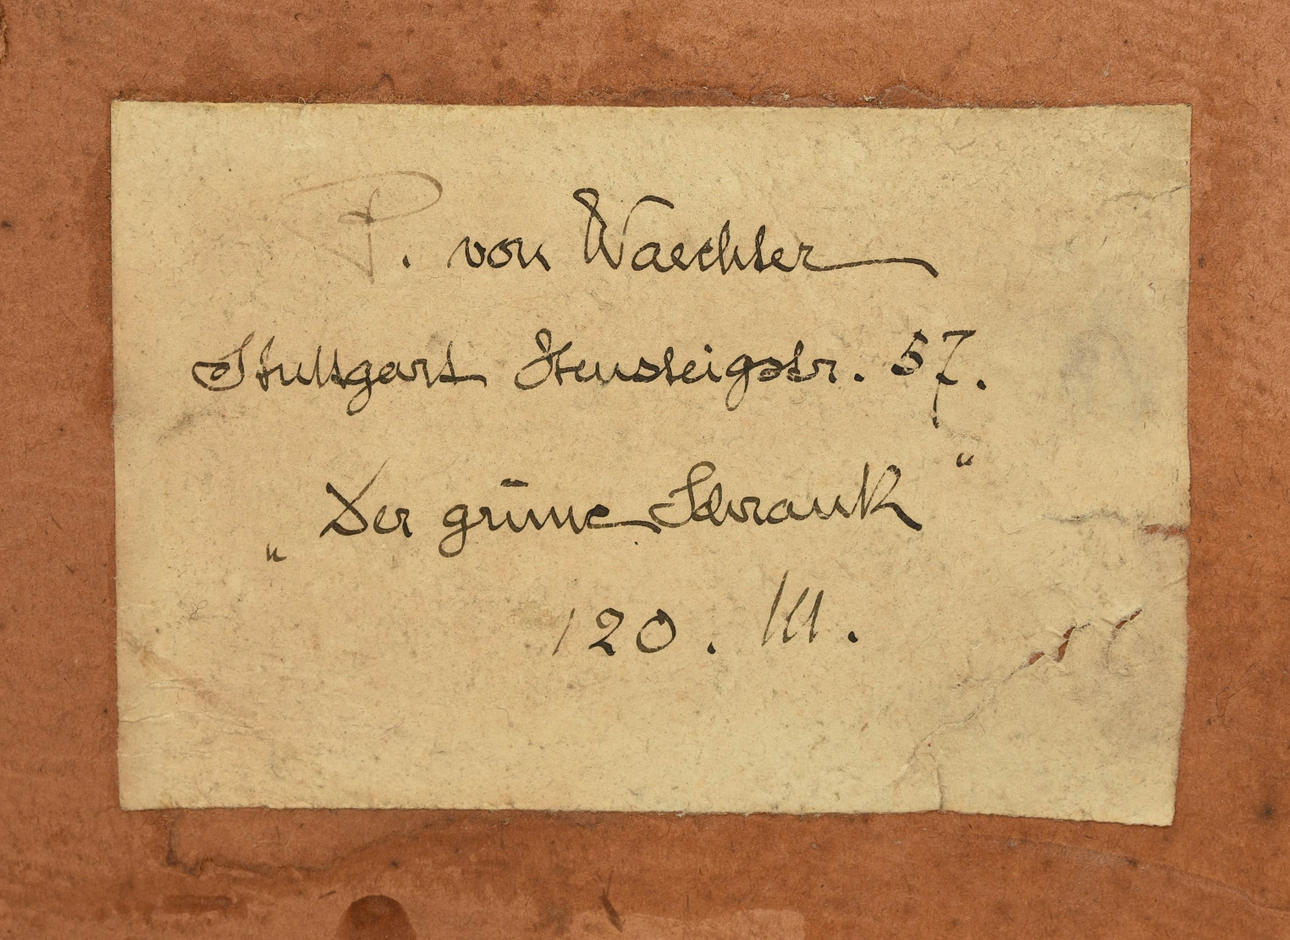 P. von Waechter
Stuttgart Heusteigstr. 57.
„Der grüne Schrank“
120. M.